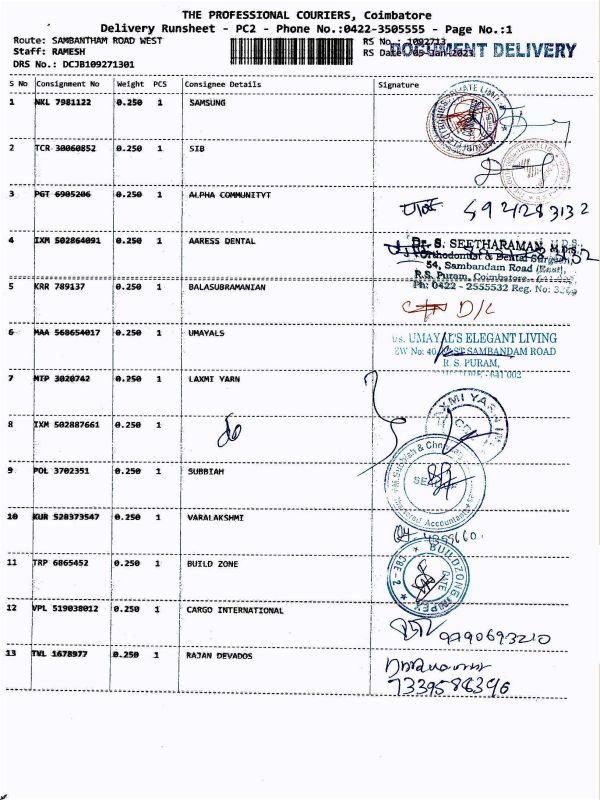 THE PROFESSIONAL COURIERS, Coimbatore
Delivery Runsheet - PC2 - Phone No.:0422-3505555 - Page No.:1
Route: SAMBANTHAM ROAD WEST
RS No. : 1092713
DOCUMENT DELIVERY
Staff: RAMESH
RS Date: 05-Jan-2023
DRS No.: DCJB109271301
S No Consignment No Weight PCS Consignee Details Signature
1 NKL 7981122 0.250 1 SAMSUNG
2 TCR 30060852 0.250 1 SIB
3 PGT 6905206 0.250 1 ALPHA COMMUNITYT
4 IXM 502864091 0.250 1 AARESS DENTAL
Dr. S. SEETHARAMAN, M.D.S.
Orthodontist & Dental Surgeon
54, Sambandam Road (East),
R.S. Puram, Coimbatore
Ph: 0422 - 2555532 Reg. No:
5 KRR 789137 0.250 1 BALASUBRAMANIAN
D/L
6 MAA 568654017 0.250 1 UMAYALS
UMAYAL'S ELEGANT LIVING
EW No: 40, EAST SAMBANDAM ROAD
R. S. PURAM,
641 002
7 MTP 3020742 0.250 1 LAXMI YARN
8 IXM 502887661 0.250 1
9 POL 3702351 0.250 1 SUBBIAH
10 KUR 528373547 0.250 1 VARALAKSHMI
11 TRP 6865452 0.250 1 BUILD ZONE
12 VPL 519038012 0.250 1 CARGO INTERNATIONAL
9790693210
13 TVL 1678977 0.250 1 RAJAN DEVADOS
7339588396